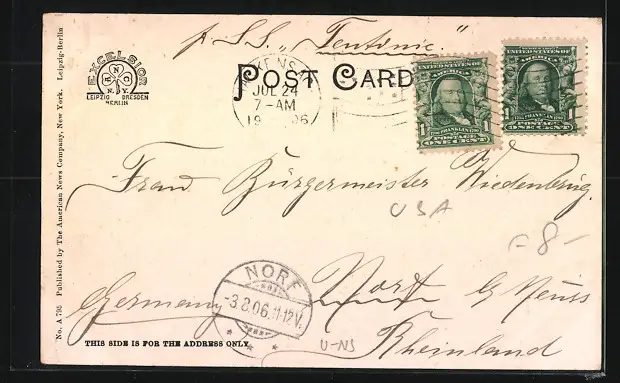 p. S.S. "Teutonic."
EXCELSIOR
N
R C
N.Y.
LEIPZIG DRESDEN
BERLIN
POST CARD
JUL 24
7-AM
UNITED STATES OF
AMERICA
FRANKLIN
1 POSTAGE 1
ONE CENT
UNITED STATES OF
AMERICA
FRANKLIN
1 POSTAGE 1
ONE CENT
Frau Bürgermeister Wiedenbrüg.
USA
-8-
NORF
-3.8.06.11-12V.
Germany Norf b/ Neuss
Rheinland
U-NS
THIS SIDE IS FOR THE ADDRESS ONLY
No. A 795 Published by The American News Company, New York. Leipzig-Berlin